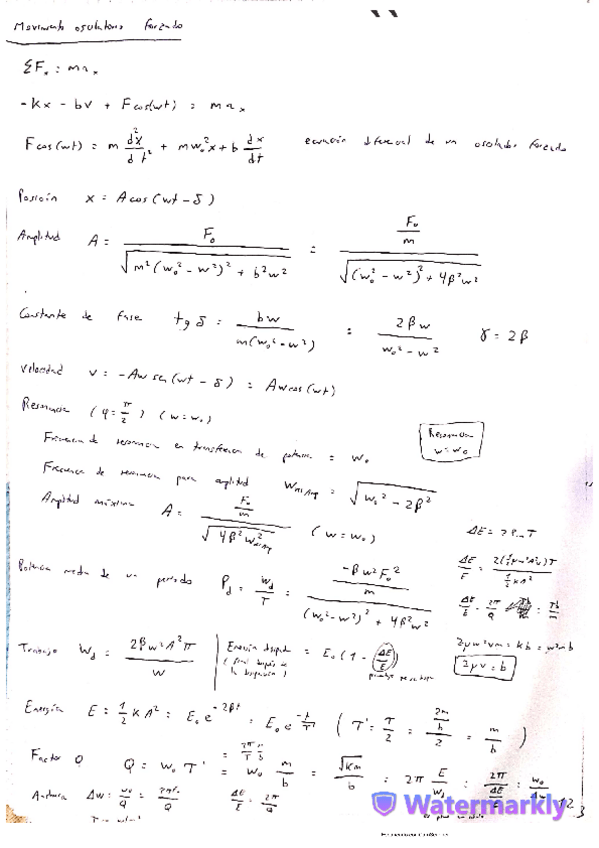 Movimiento oscilatorio forzado
ΣFx = max
-Kx - bv + F cos(wt) = max
F cos(wt) = m d²x/dt² + mw₀²x + b dx/dt ecuación diferencial de un oscilador forzado
Posición x = A cos(wt - δ)
Amplitud A = F₀ / √(m²(w₀² - w²)² + b²w²) = (F₀/m) / √((w₀² - w²)² + 4β²w²)
Constante de fase tg δ = bw / m(w₀² - w²) = 2βw / (w₀² - w²) γ = 2β
Velocidad v = -Aw sen(wt - δ) = Aw cos(wt)
Resonancia (φ = π/2) (w = w₀)
Frecuencia de resonancia en transferencia de potencia = w₀
Resonancia w = w₀
Frecuencia de resonancia para amplitud = √(w₀² - 2β²)
Amplitud máxima A = (F₀/m) / √(4β²w²) (w = w₀)
ΔE/E = 2(½ w²A²)T / ½KA²
Potencia media de un periodo Pd = Wd/T = (-βw²F₀²/m) / ((w₀² - w²)² + 4β²w²)
ΔE/E = 2π/Q = Tb/m
Trabajo Wd = 2βw²A²π / w
Energía = E₀(1 - ΔE/E)
2μv = b
Energía E = ½KA² = E₀e^(-2βt) = E₀e^(-t/T') (T' = T/2 = (2m/b)/2 = m/b)
Factor Q Q = w₀T' = w₀ m/b = √Km/b = 2π E/Wd = 2π/(ΔE/E) = w₀/Δw
Anchura Δw = w₀/Q ΔE/E = 2π/Q
Watermarkly